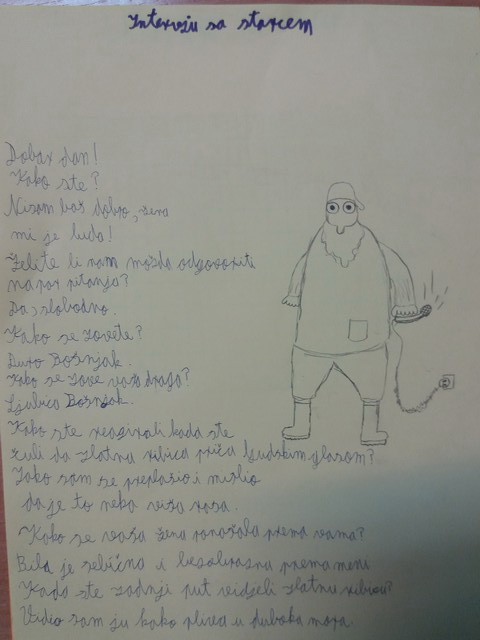 Intervju sa starcem
Dobar dan!
Kako ste?
Nisam baš dobro, žena
mi je luda!
Želite li nam možda odgovoriti
na par pitanja?
Da, slobodno.
Kako se zovete?
Đuro Bošnjak.
Kako se zove vaša draga?
Ljubica Bošnjak.
Kako ste reagirali kada ste
čuli da zlatna ribica priča ljudskim glasom?
Jako sam se preplašio i mislio
da je to neka viša rasa.
Kako se vaša žena ponašala prema vama?
Bila je sebična i bezobrazna prema meni
Kada ste zadnji put vidjeli zlatnu ribicu?
Vidio sam ju kako pliva u duboka mora.